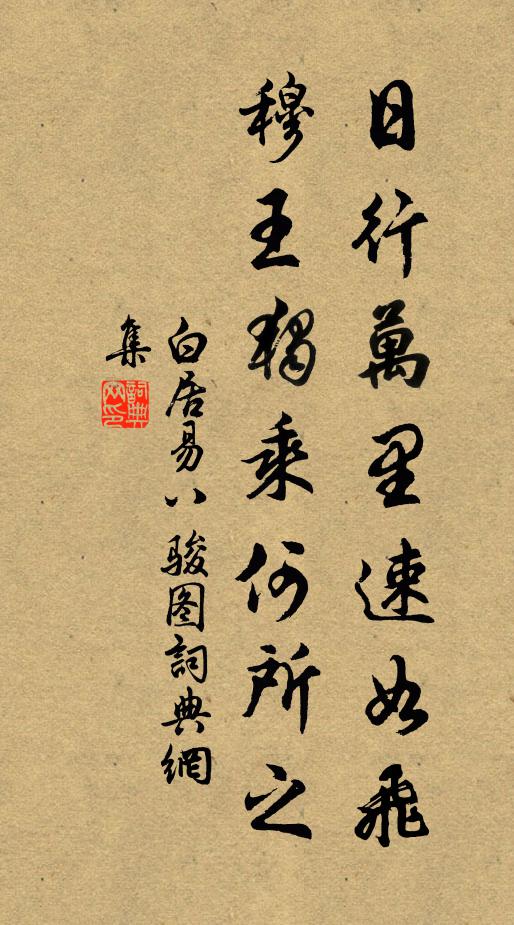 日行萬里速如飛
穆王獨乘何所之
白居易八駿图詞典網
集
詞典网印